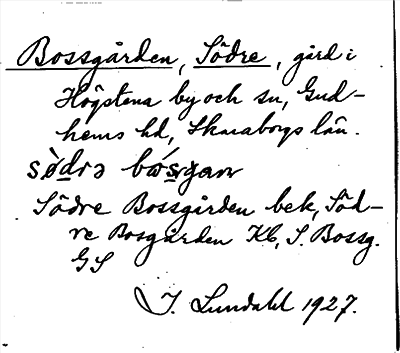 Bossgården, Södre, gård i
Högstena by och sn, Gud-
hems hd, Skaraborgs län.
södrə
Södre Bossgården bek, Söd-
re Bosgården Kb, S. Bossg.
GS
I. Lundahl 1927.